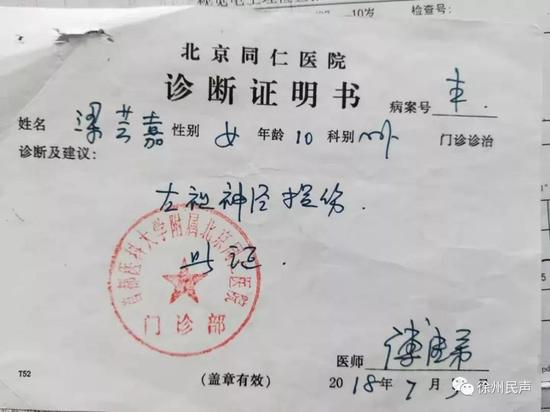 10岁 检查号:
北京同仁医院
诊断证明书
病案号
姓名 梁芸嘉 性别 女 年龄 10 科别 门诊诊治
诊断及建议:
左视神经损伤.
此证.
首都医科大学附属北京同仁医院
门诊部
医师
T52 (盖章有效) 2018年7月 日
@徐州民声